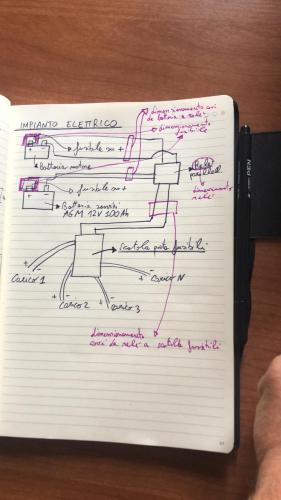 IMPIANTO ELETTRICO
dimensionamento cavi
da batteria a relè
dimensionamento
fusibile
fusibile su +
Batteria motore
Relè
parallel.
fusibile su +
dimensionamento
relè
Batteria servizi
AGM 12V 100Ah
scatola porta fusibili
Carico 1
Carico 2
Carico 3
Carico N
dimensionamento
cavi da relè a scatola fusibili
PEN